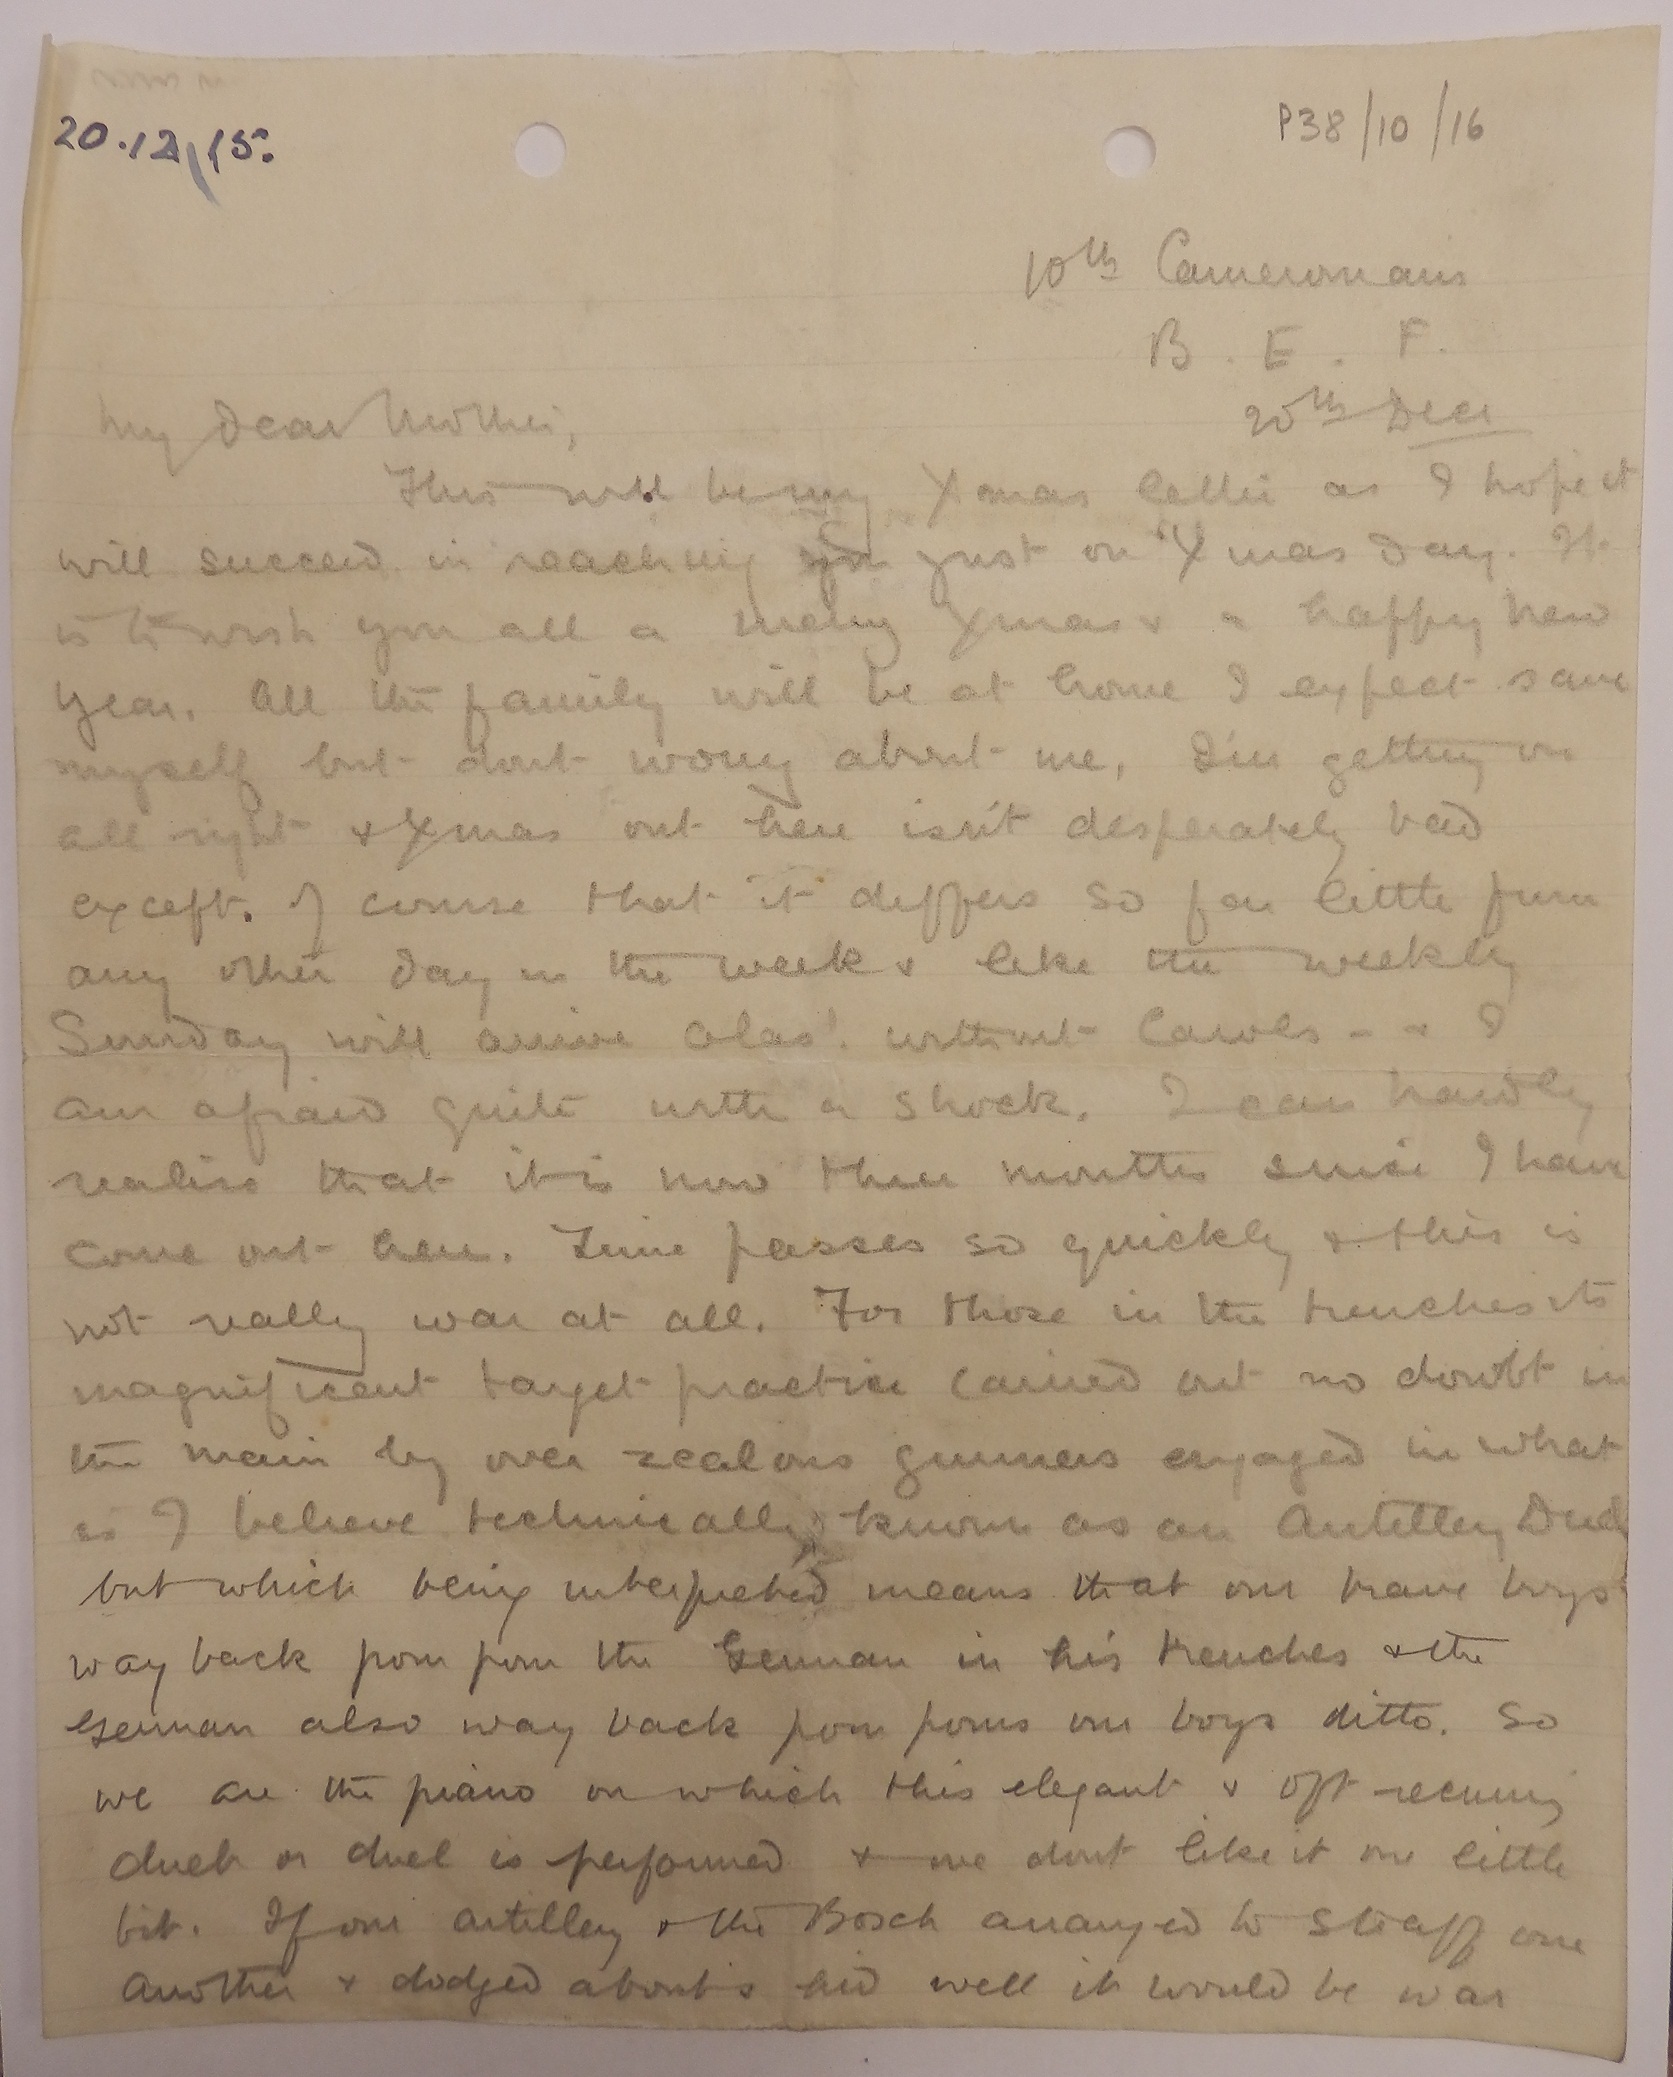 20.12.15.
P38/10/16
10th Cameronians
B. E. F.
20th Decr
My Dear Mother,
This will be my Xmas letter as I hope it
will succeed in reaching you just on Xmas Day. It
is to wish you all a merry Xmas & a happy New
Year. All the family will be at home I expect save
myself but dont worry about me, I'm getting on
all right & Xmas out here isn't desperately bad
except. of course that it differs so far little from
any other day in the week & like the weekly
Sunday will arrive alas! without Carols - & I
am afraid quite with a shock. I can hardly
realise that it is now three months since I have
come out here. Time passes so quickly & this is
not really war at all. For those in the trenches its
magnificent target practice carried out no doubt in
the main by over zealous gunners engaged in what
is I believe technically known as an Artillery Duel
but which being interpreted means that our brave boys
way back pom pom the German in his trenches & the
German also way back pom poms our boys ditto. So
we are the piano on which this elegant & oft recurring
duet or duel is performed & we dont like it one little
bit. If our artillery & the Bosch arranged to straff one
another & dodged about & hid well it would be war